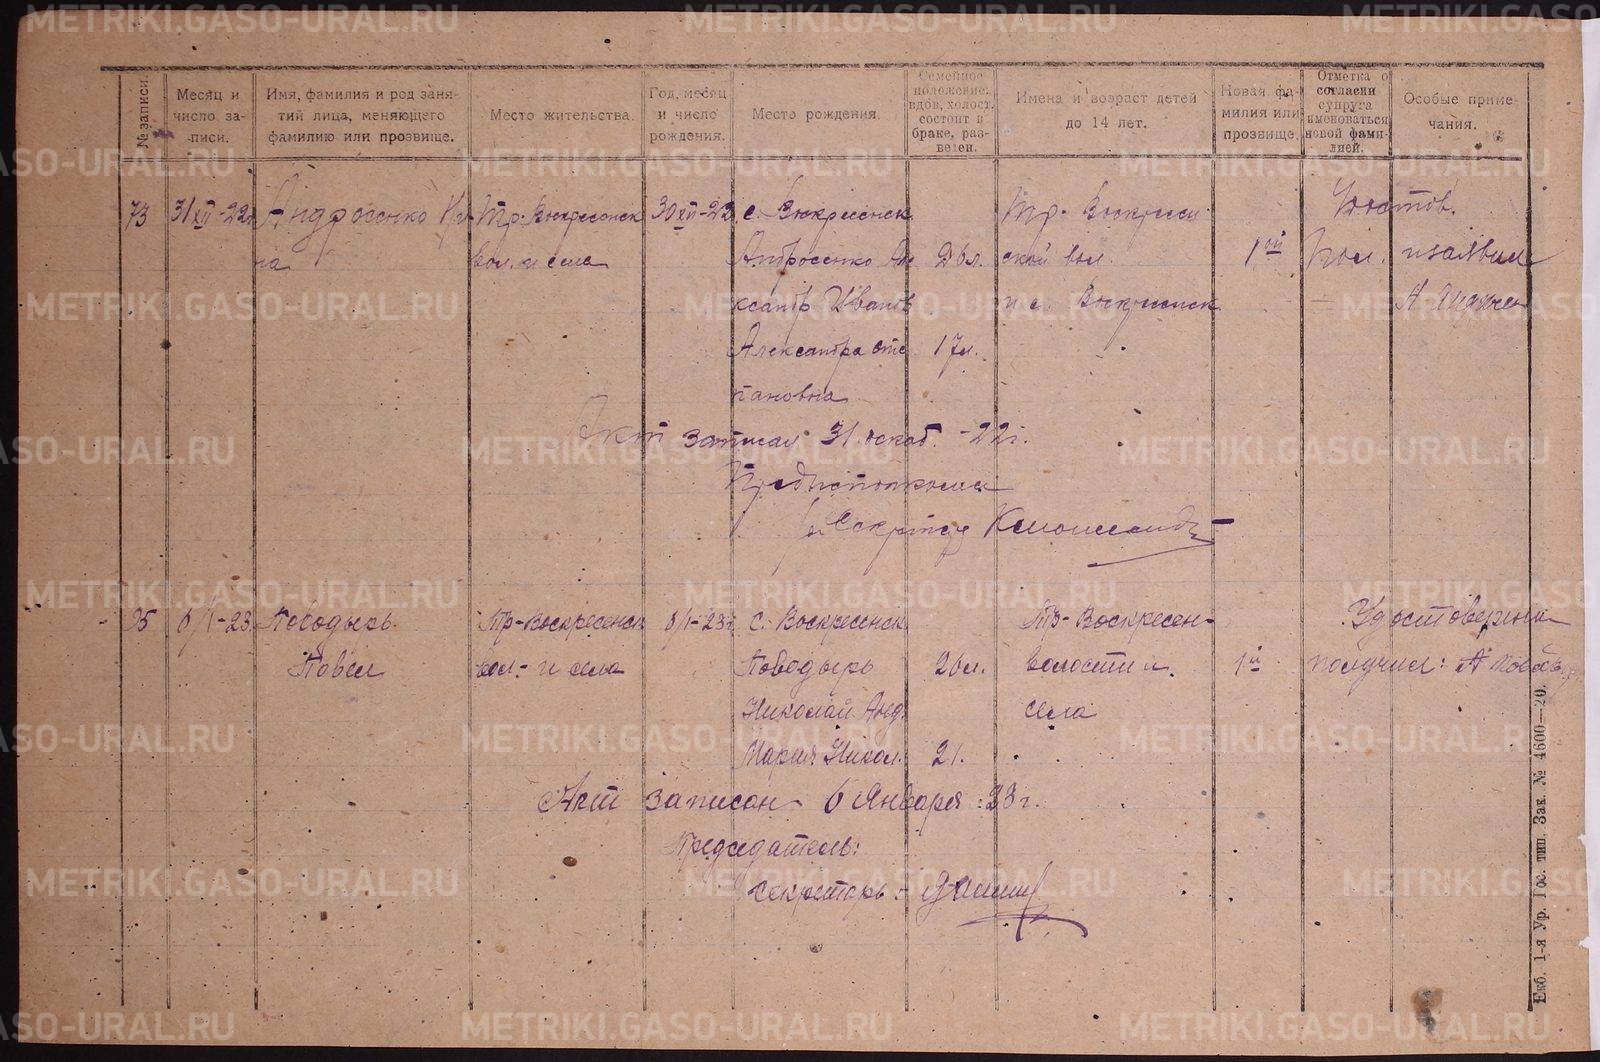 № записи.
Месяц и число за-писи.
Имя, фамилия и род заня-
тий лица, меняющего
фамилию или прозвище.
Место жительства.
Год, месяц
и число
рождения.
Место рождения.
Семейное
положение:
вдов, холост,
состоит в
браке, раз-
веден.
Имена и возраст детей
до 14 лет.
Новая фа-
милия или
прозвище.
Отметка о
согласии
супруга
именоваться
новой фами-
лией.
Особые приме-
чания.
73 31 XII-22г Андросенко 30 XII-22 с. Воскресенск Тр. Воскресен
на вол. и села Андросенко Але 26л. ской вол. 1ой
ксандр Иванов и с. Воскресенск
Александра Сте 17л.
пановна
Акт записан 31 декаб. -22г.
Предисполкома
Секретарь
6/I-23. Поводырь Тр-Воскресенск 6/I-23г с. Воскресенск Тр-Воскресен- Удостоверение
Павел вол- и села Поводырь 26л. волости и 1й получил: А Повод
Николай Анд. села
Мария Никол. 21.
Акт записан 6 Января 23г.
Председатель:
Секретарь:
Екб. 1-я Ур. Гос. тип. Зак. № 4600—20.
METRIKI.GASO-URAL.RU